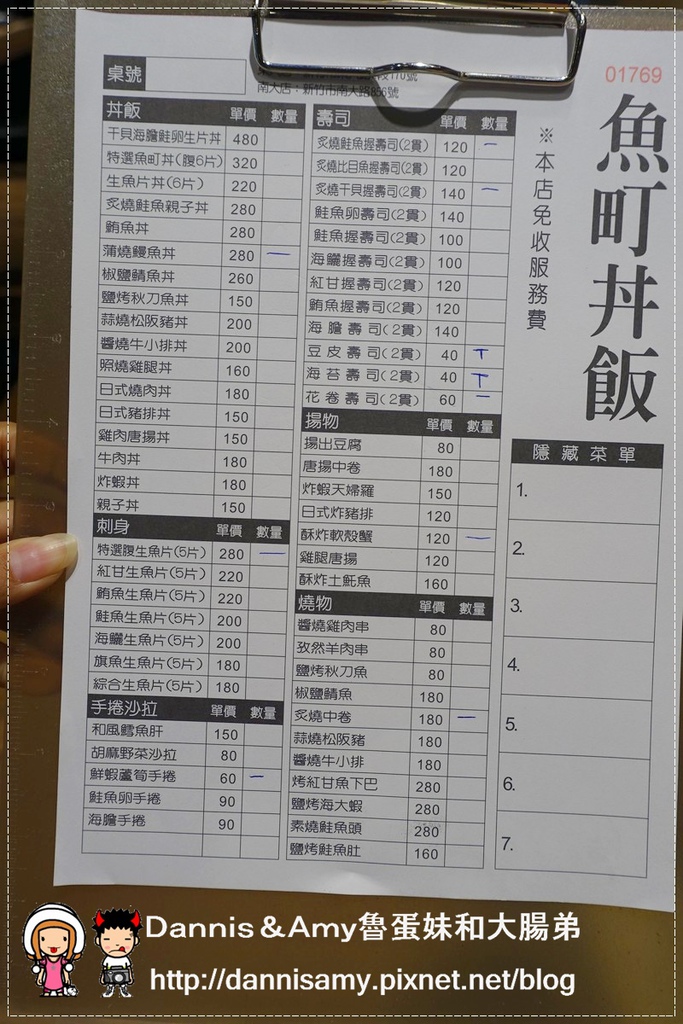 桌號
南大店：新竹市南大路856號
01769
魚町丼飯
※本店免收服務費
丼飯 單價 數量
干貝海膽鮭卵生片丼 480
特選魚町丼(腹6片) 320
生魚片丼(6片) 220
炙燒鮭魚親子丼 280
鮪魚丼 280
蒲燒鰻魚丼 280 一
椒鹽鯖魚丼 260
鹽烤秋刀魚丼 150
蒜燒松阪豬丼 200
醬燒牛小排丼 200
照燒雞腿丼 160
日式燒肉丼 180
日式豬排丼 150
雞肉唐揚丼 150
牛肉丼 180
炸蝦丼 180
親子丼 150
刺身 單價 數量
特選腹生魚片(5片) 280 一
紅甘生魚片(5片) 220
鮪魚生魚片(5片) 220
鮭魚生魚片(5片) 200
海鱺生魚片(5片) 200
旗魚生魚片(5片) 180
綜合生魚片(5片) 180
手捲沙拉 單價 數量
和風鱈魚肝 150
胡麻野菜沙拉 80
鮮蝦蘆筍手捲 60 一
鮭魚卵手捲 90
海膽手捲 90
壽司 單價 數量
炙燒鮭魚握壽司(2貫) 120 一
炙燒比目魚握壽司(2貫) 120
炙燒干貝握壽司(2貫) 140 一
鮭魚卵壽司(2貫) 140
鮭魚握壽司(2貫) 100
海鱺握壽司(2貫) 100
紅甘握壽司(2貫) 120
鮪魚握壽司(2貫) 120
海膽壽司(2貫) 140
豆皮壽司(2貫) 40 丅
海苔壽司(2貫) 40 丅
花卷壽司(2貫) 60 一
揚物 單價 數量
揚出豆腐 80
唐揚中卷 180
炸蝦天婦羅 150
日式炸豬排 120
酥炸軟殼蟹 120 一
雞腿唐揚 120
酥炸土魠魚 160
燒物 單價 數量
醬燒雞肉串 80
孜然羊肉串 80
鹽烤秋刀魚 80
椒鹽鯖魚 180
炙燒中卷 180 一
蒜燒松阪豬 180
醬燒牛小排 180
烤紅甘魚下巴 280
鹽烤海大蝦 280
素燒鮭魚頭 280
鹽烤鮭魚肚 160
隱藏菜單
1.
2.
3.
4.
5.
6.
7.
Dannis&Amy魯蛋妹和大腸弟
http://dannisamy.pixnet.net/blog